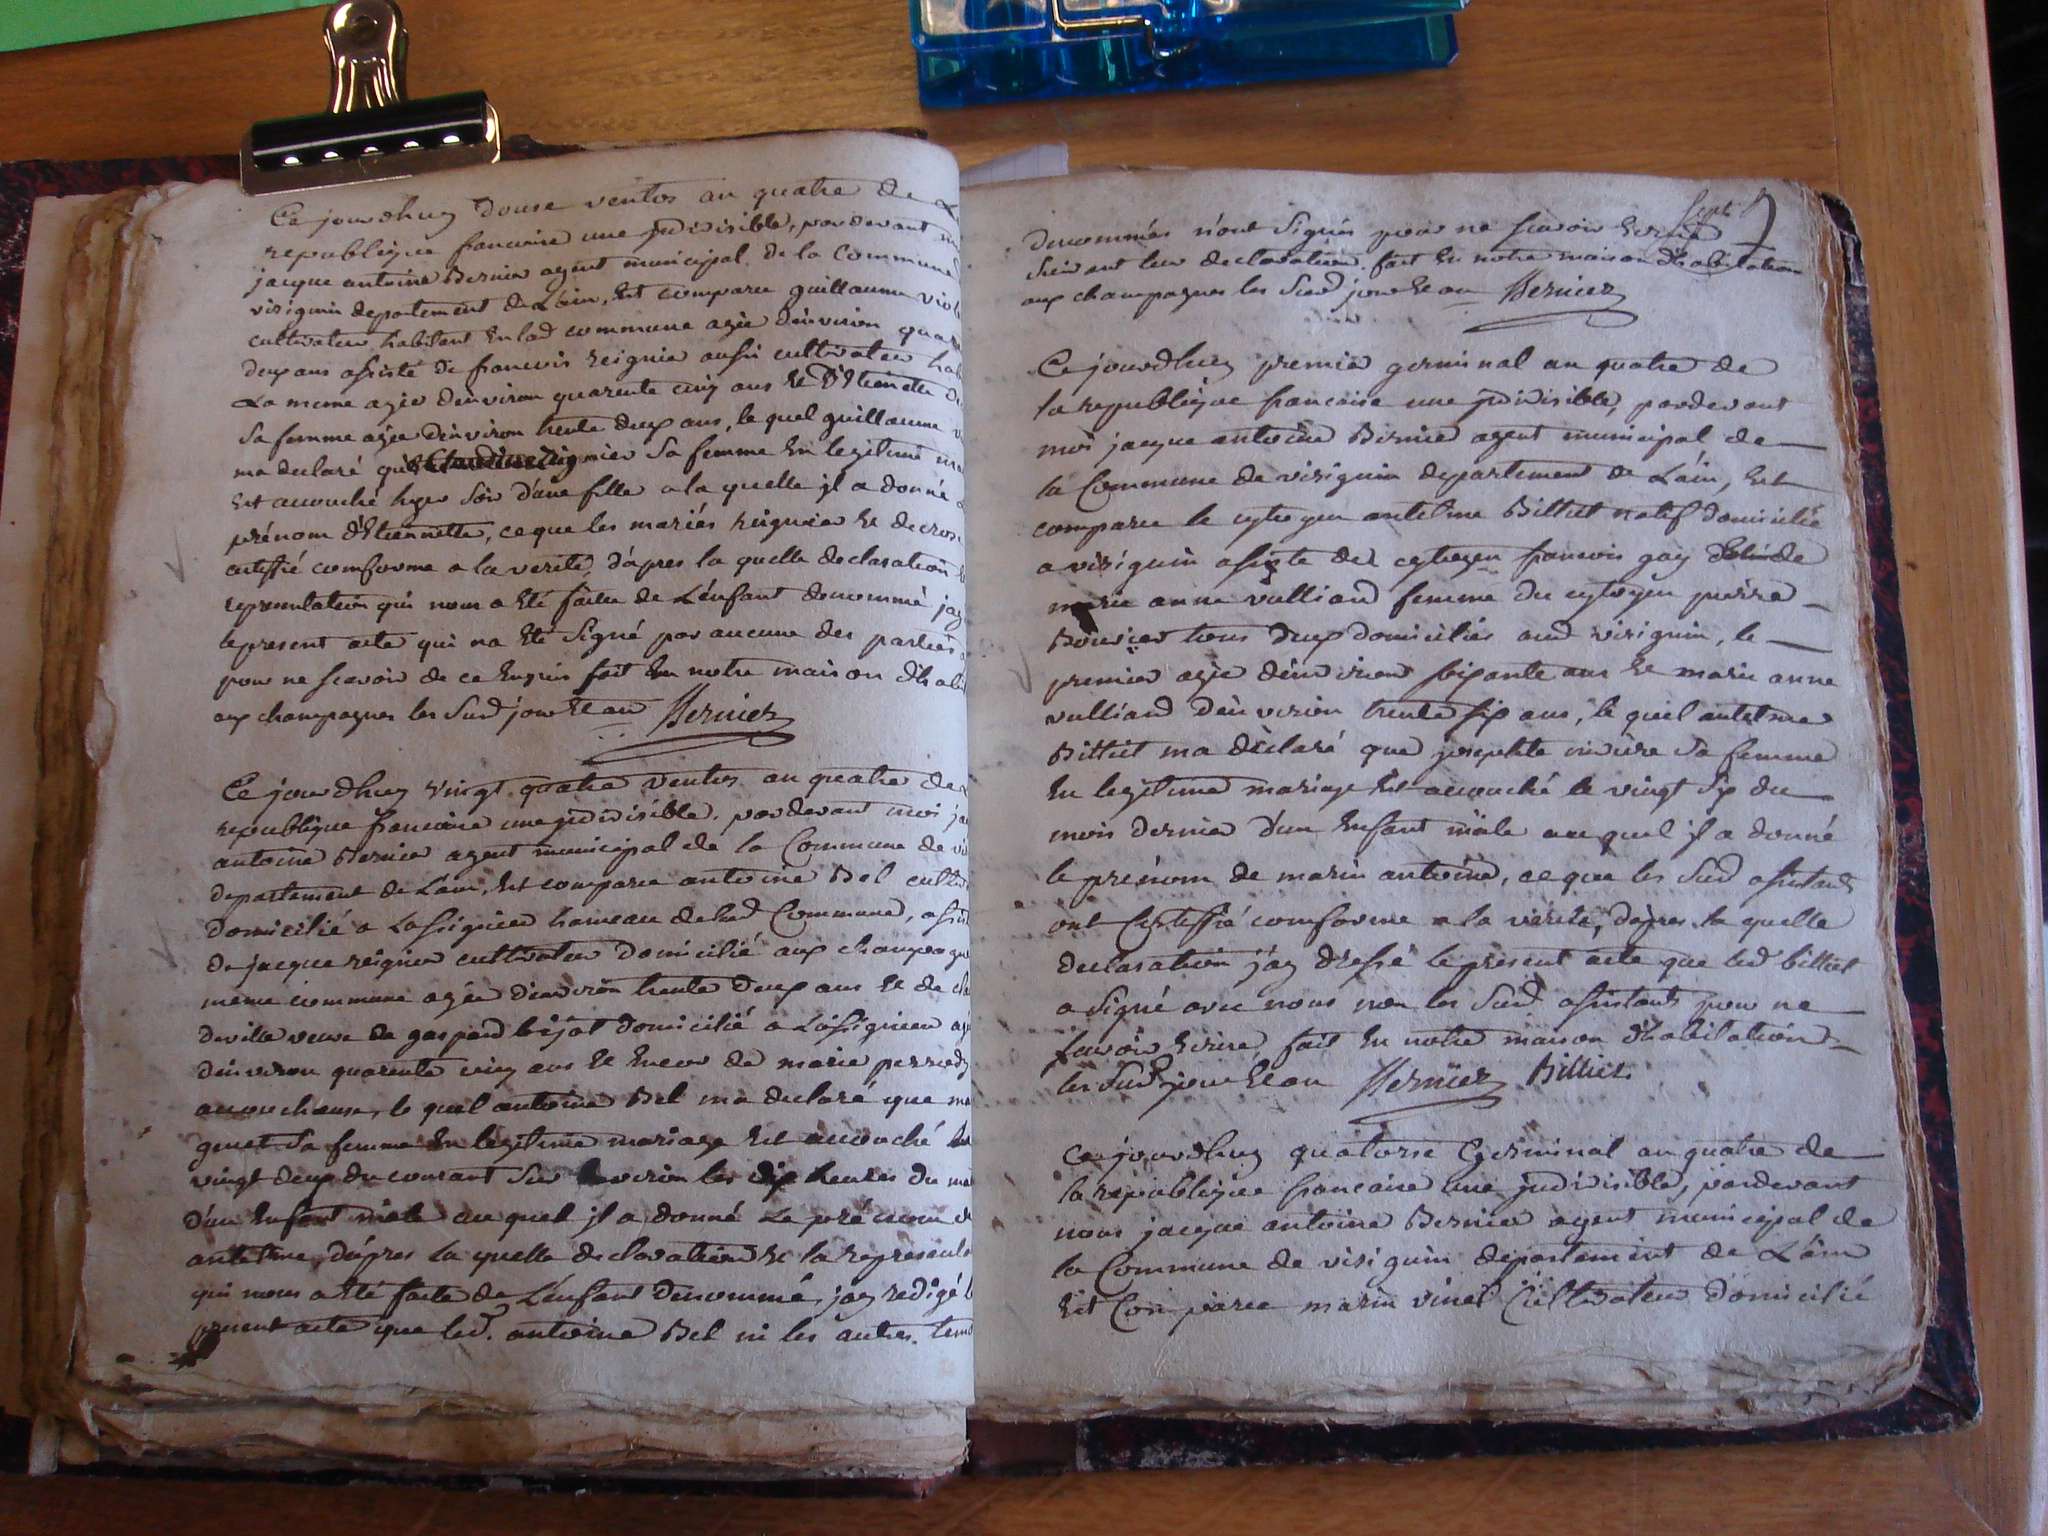 Ce jourdhuy douse ventos an quatre de La
republique francaise une jndivisible, pardevant
jacque antoine Bernier agent municipal de la Commune
virignin departement de L'ain, Est comparu guillaume
cultivateur habitant En lad commune agée d'environ
deux ans assisté de francois reignier aussi cultivateur
La meme agée d'environ quarente cinq ans Et d'Etiennette
Sa femme agée d'environ trente deux ans, le quel guillaume
ma declaré qu'Et Claudine reignier Sa femme En legitime
Est accouché hyer Soir d'une fille a la quelle jl a donné
prénom d'Etiennette, ce que les mariés reignier Et decroso
certiffié comforme a la verité, d'apres la quelle declaration
representation qui nous a Eté faite de L'enfant denommé jay
le present acte qui na Eté Signé par aucune des parties
pour ne scavoir de ce Enquis fait En notre maison d'habit
aux champagnes les Sud jour Et an Bernier
Ce jourdhuy vingt quatre ventos an quatre de
republique francaise une jndivisible, pardevant moi
antoine Bernier agent municipal de la Commune de
departement de L'ain, Est comparu antoine Bel
domicilié a Lassignieu hameau de lad Commune,
de jacque reignier cultivateur domicilié aux champagnes
meme commune agée d'environ trente deux ans Et de
deville veuve de gaspard bijot domicilié a Lassignieu
d'environ quarente cinq ans Et Encor de marie
accoucheuse, le quel antoine Bel ma declaré que
guet Sa femme En legitime mariage Est accouché
vingt deux du courant Sur Lenviron les dix heures du
d'un Enfant male au quel jl a donné Le prénom
antelme, d'apres la quelle declaration Et la represent
qui nous a Eté faite de L'enfant denommé, jay redigé
present acte que led. antoine Bel ni les autres
Sept 7
denommés n'ont Signés pour ne scavoir Ecrire
Suivant leur declaration. fait En notre maison d'habitation
aux champagnes les Sud jour Et an Bernier
Ce jourdhuy premier germinal an quatre de
la republique francaise une jndivisible, pardevant
moi jacque antoine Bernier agent municipal de
la Commune de virignin departement de L'ain, Est
comparu le cytoyen antelme Billiet natif domicilié
a virignin assiste des cytoyen francois gay Et de
marie anne vulliard femme du cytoyen pierre
Bouvier tous deux domiciliés aud virignin, le
premier agée d'environ soixante ans Et marie anne
vulliard d'environ trente six ans, le quel antelme
Billiet ma declaré que josephte riviere Sa femme
En legitime mariage Est accouché le vingt Six du
mois dernier d'un Enfant male au quel jl a donné
le prénom de marin antoine, ce que les Sud assistants
ont Certiffié comforme a la vérité, d'apres la quelle
declaration j'ay dressé le present acte que led billiet
a Signé avec nous non les Sud assistants pour ne
scavoir Ecrire fait En notre maison d'habitation
les Sud jour Et an Bernier Billiet
Ce jourdhuy quatorse Germinal an quatre de
la republique francaise une jndivisible, pardevant
nous jacque antoine Bernier agent municipal de
la Commune de virignin departement de L'ain
Est Comparu marin vinet Cultivateur domicilié